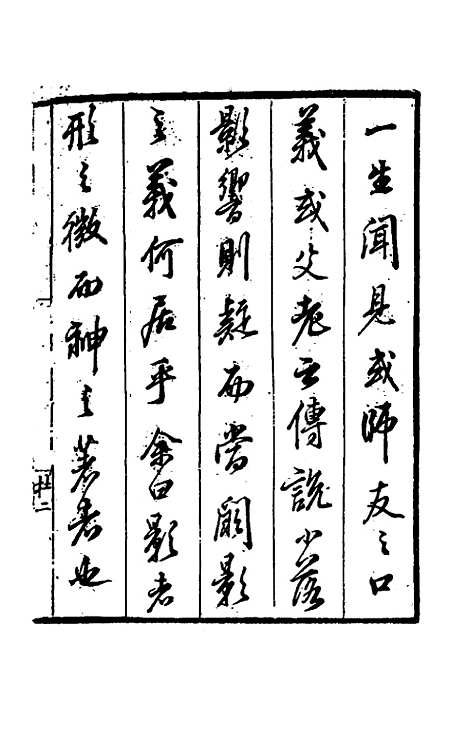 一生聞見或師友之口
義或父老之傳說少落
影響則疑而當闕影
之義何居乎余曰影者
形之微而神之著者也